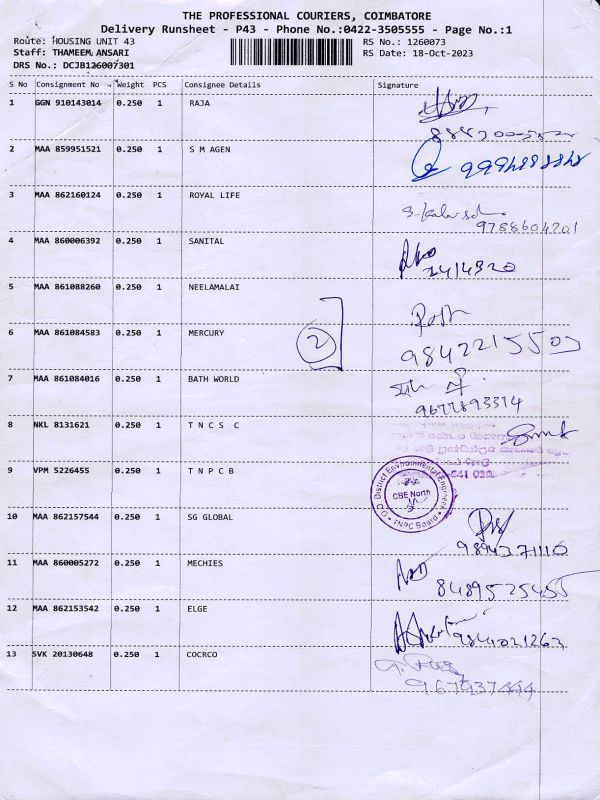 THE PROFESSIONAL COURIERS, COIMBATORE
Delivery Runsheet - P43 - Phone No.:0422-3505555 - Page No.:1
Route: HOUSING UNIT 43 RS No.: 1260073
Staff: THAMEEM ANSARI RS Date: 18-Oct-2023
DRS No.: DCJB126007301
S No Consignment No Weight PCS Consignee Details Signature
1 GGN 910143014 0.250 1 RAJA
2 MAA 859951521 0.250 1 S M AGEN
3 MAA 862160124 0.250 1 ROYAL LIFE
9788604201
4 MAA 860006392 0.250 1 SANITAL
5 MAA 861088260 0.250 1 NEELAMALAI
6 MAA 861084583 0.250 1 MERCURY 2
7 MAA 861084016 0.250 1 BATH WORLD
9677893314
8 NKL 8131621 0.250 1 T N C S C
9 VPM 5226455 0.250 1 T N P C B
O/o District Environmental Engineer
CBE North
TNPC Board
10 MAA 862157544 0.250 1 SG GLOBAL
11 MAA 860005272 0.250 1 MECHIES
8489525455
12 MAA 862153542 0.250 1 ELGE
9844021263
13 SVK 20130648 0.250 1 COCRCO